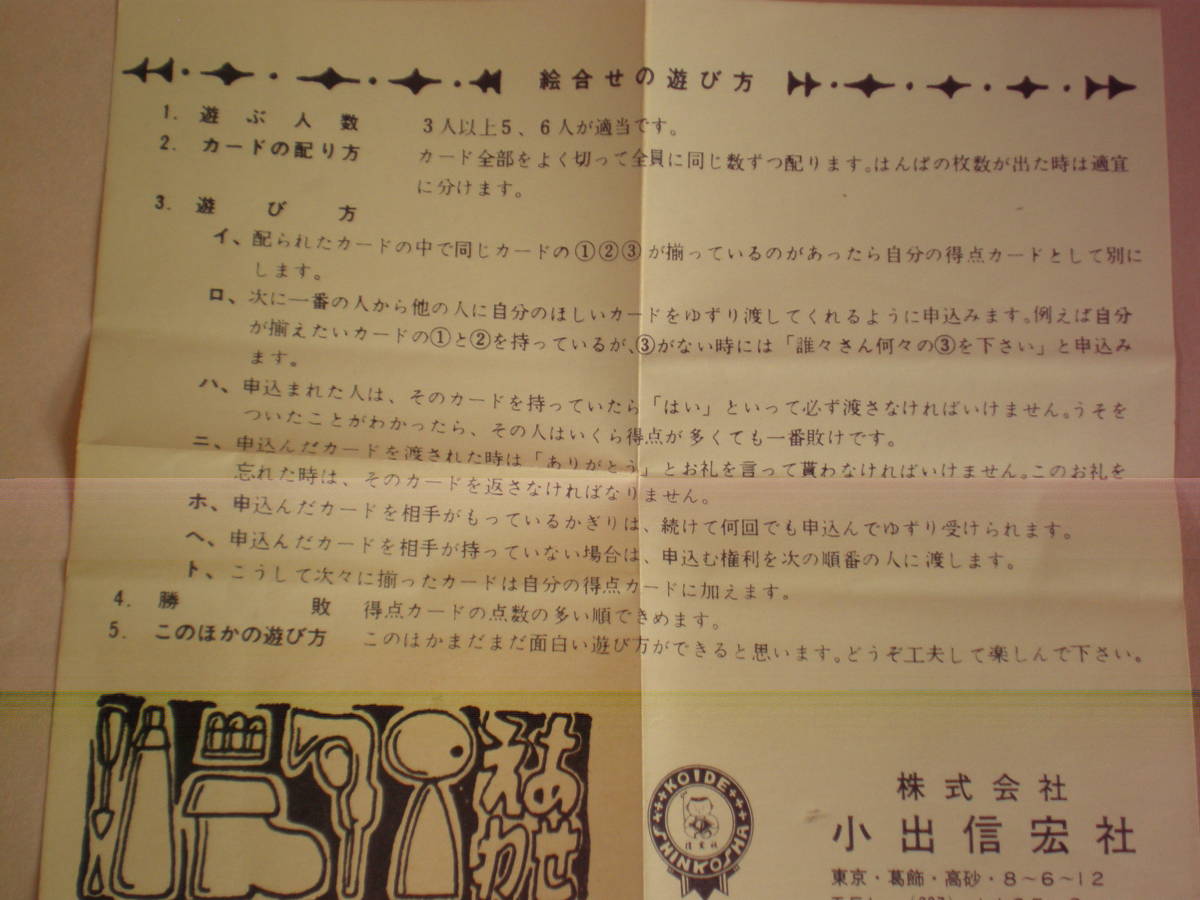 絵合せの遊び方
1. 遊ぶ人数 3人以上5、6人が適当です。
2. カードの配り方 カード全部をよく切って全員に同じ数ずつ配ります。はんぱの枚数が出た時は適宜
に分けます。
3. 遊び方
イ、配られたカードの中で同じカードの①②③が揃っているのがあったら自分の得点カードとして別に
します。
ロ、次に一番の人から他の人に自分のほしいカードをゆずり渡してくれるように申込みます。例えば自分
が揃えたいカードの①と②を持っているが、③がない時には「誰々さん何々の③を下さい」と申込み
ます。
ハ、申込まれた人は、そのカードを持っていたら「はい」といって必ず渡さなければいけません。うそを
ついたことがわかったら、その人はいくら得点が多くても一番敗けです。
ニ、申込んだカードを渡された時は「ありがとう」とお礼を言って貰わなければいけません。このお礼を
忘れた時は、そのカードを返さなければなりません。
ホ、申込んだカードを相手がもっているかぎりは、続けて何回でも申込んでゆずり受けられます。
ヘ、申込んだカードを相手が持っていない場合は、申込む権利を次の順番の人に渡します。
ト、こうして次々に揃ったカードは自分の得点カードに加えます。
4. 勝敗 得点カードの点数の多い順できめます。
5. このほかの遊び方 このほかまだまだ面白い遊び方ができると思います。どうぞ工夫して楽しんで下さい。
えあわせ
KOIDE
SHINKOSHA
株式会社
小出信宏社
東京・葛飾・高砂・8~6~12